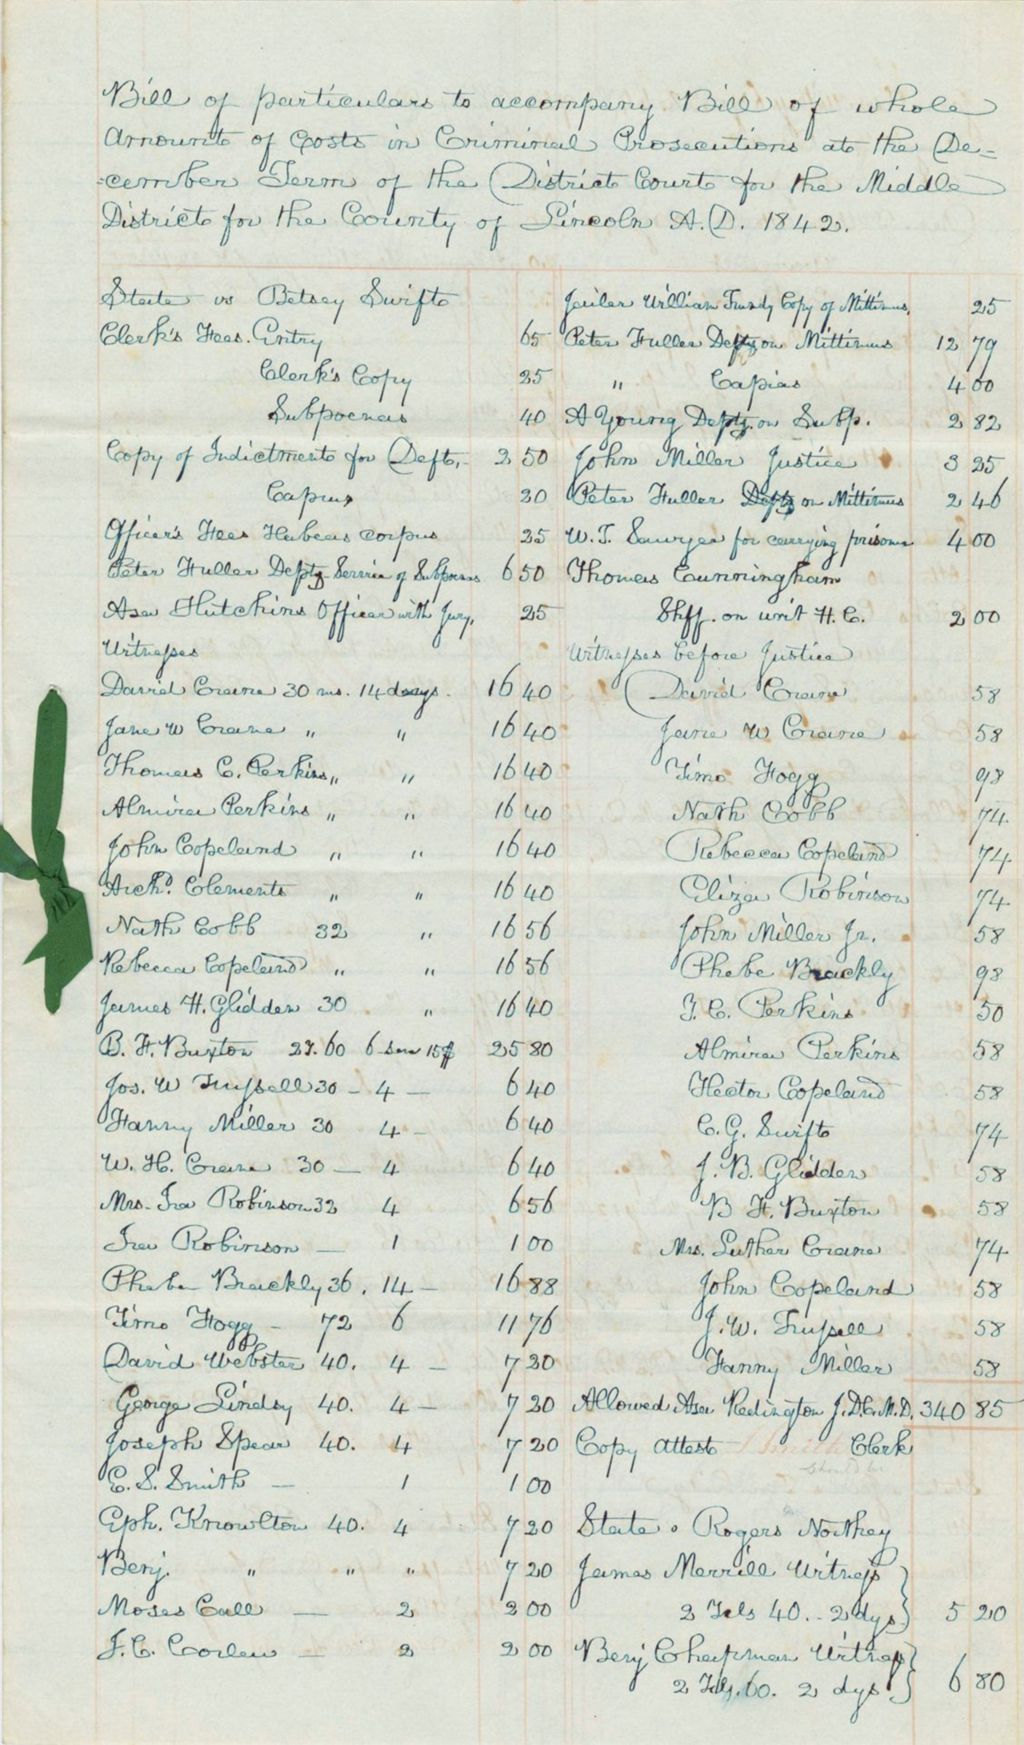 Bill of particulars to accompany Bill of whole
amount of Costs in Criminal Prosecutions at the De=
=cember Term of the District Court for the Middle
District for the County of Lincoln A.D. 1842.
State vs Betsey Swift
Clerk's Fees. Entry 65
Clerk's Copy 25
Subpoenas 40
Copy of Indictment for Deft. 2 50
Capias 30
Officer's Fees Habeas corpus 35
Peter Fuller Depty Service of Subpoenas 6 50
Asa Hutchins Officer with Jury, 25
Witnesses
David Crane 30 ms. 14 days. 16 40
Jane W Crane " " 16 40
Thomas C. Perkins " " 16 40
Almira Perkins " " 16 40
John Copeland " " 16 40
Archd. Clements " " 16 40
Nath Cobb 32 " 16 56
Rebecca Copeland " " 16 56
James H. Glidden 30 " 16 40
B. F. Buxton 27.60 6 25 80
Jos. W Trussell 30 - 4 - 6 40
Fanny Miller 30 4 - 6 40
W. H. Crane 30 - 4 6 40
Mrs. Ira Robinson 32 4 6 56
Ira Robinson - 1 1 00
Phebe Brackly 36. 14 - 16 88
Timo Fogg - 72 6 11 76
David Webster 40. 4 - 7 20
George Lindsy 40. 4 - 7 20
Joseph Spear 40. 4 7 20
E. S. Smith - 1 1 00
Eph. Knowlton 40. 4 7 20
Benj. " " " 7 20
Moses Call - 2 2 00
J. C. - 2 2 00
Jailer William Copy of Mittimus, 25
Peter Fuller Depty on Mittimus 12 79
" Capias 4 00
A Young Depty. on Subp. 2 82
John Miller Justice 3 25
Peter Fuller Depty on Mittimus 2 46
W. T. Sawyer for carrying prisoner 4 00
Thomas Cunningham
Shff. on writ H. C. 2 00
Witnesses before Justice
David Crane 58
Jane W Crane 58
Timo Fogg 98
Nath Cobb 74
Rebecca Copeland 74
Eliza Robinson 74
John Miller Jr. 58
Phebe Brackly 98
T. C. Perkins 50
Almira Perkins 58
Hector Copeland 58
C. G. Swift 74
J. B. Glidden 58
B F. Buxton 58
Mrs. Luther Crane 74
John Copeland 58
J. W. Trussell 58
Fanny Miller 58
Allowed Asa Redington J.D.C.M.D. 340 85
Copy attest Clerk
State v Rogers Northey
James Merrill Witness
2 Tvls 40.. 2 dys 5 20
Benj Chapman Witness
2 Tvls. 60. 2 dys 6 80